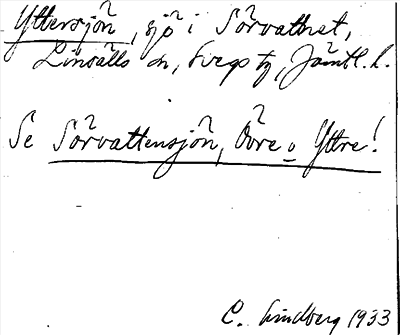 Yttersjön, sjö i Sörvattnet,
Linsälls sn, Svegs tg, Jämtl. l.
Se Sörvattensjön, Övre o Yttre!
C. Lindberg 1933